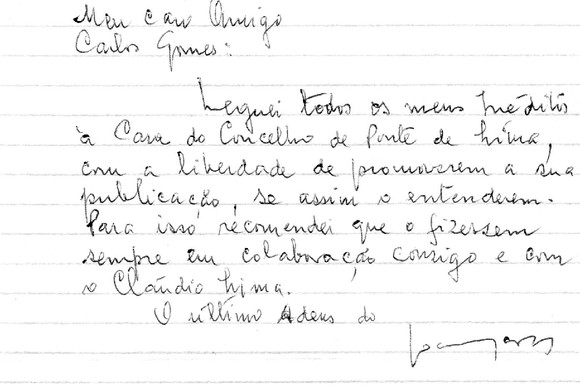 Meu caro Amigo
Carlos Gomes:
Leguei todos os meus Inéditos
à Casa do Concelho de Ponte de Lima,
com a liberdade de promoverem a sua
publicação, se assim o entenderem.
Para isso recomendei que o fizessem
sempre em colaboração consigo e com
o Cláudio Lima.
O último Adeus do